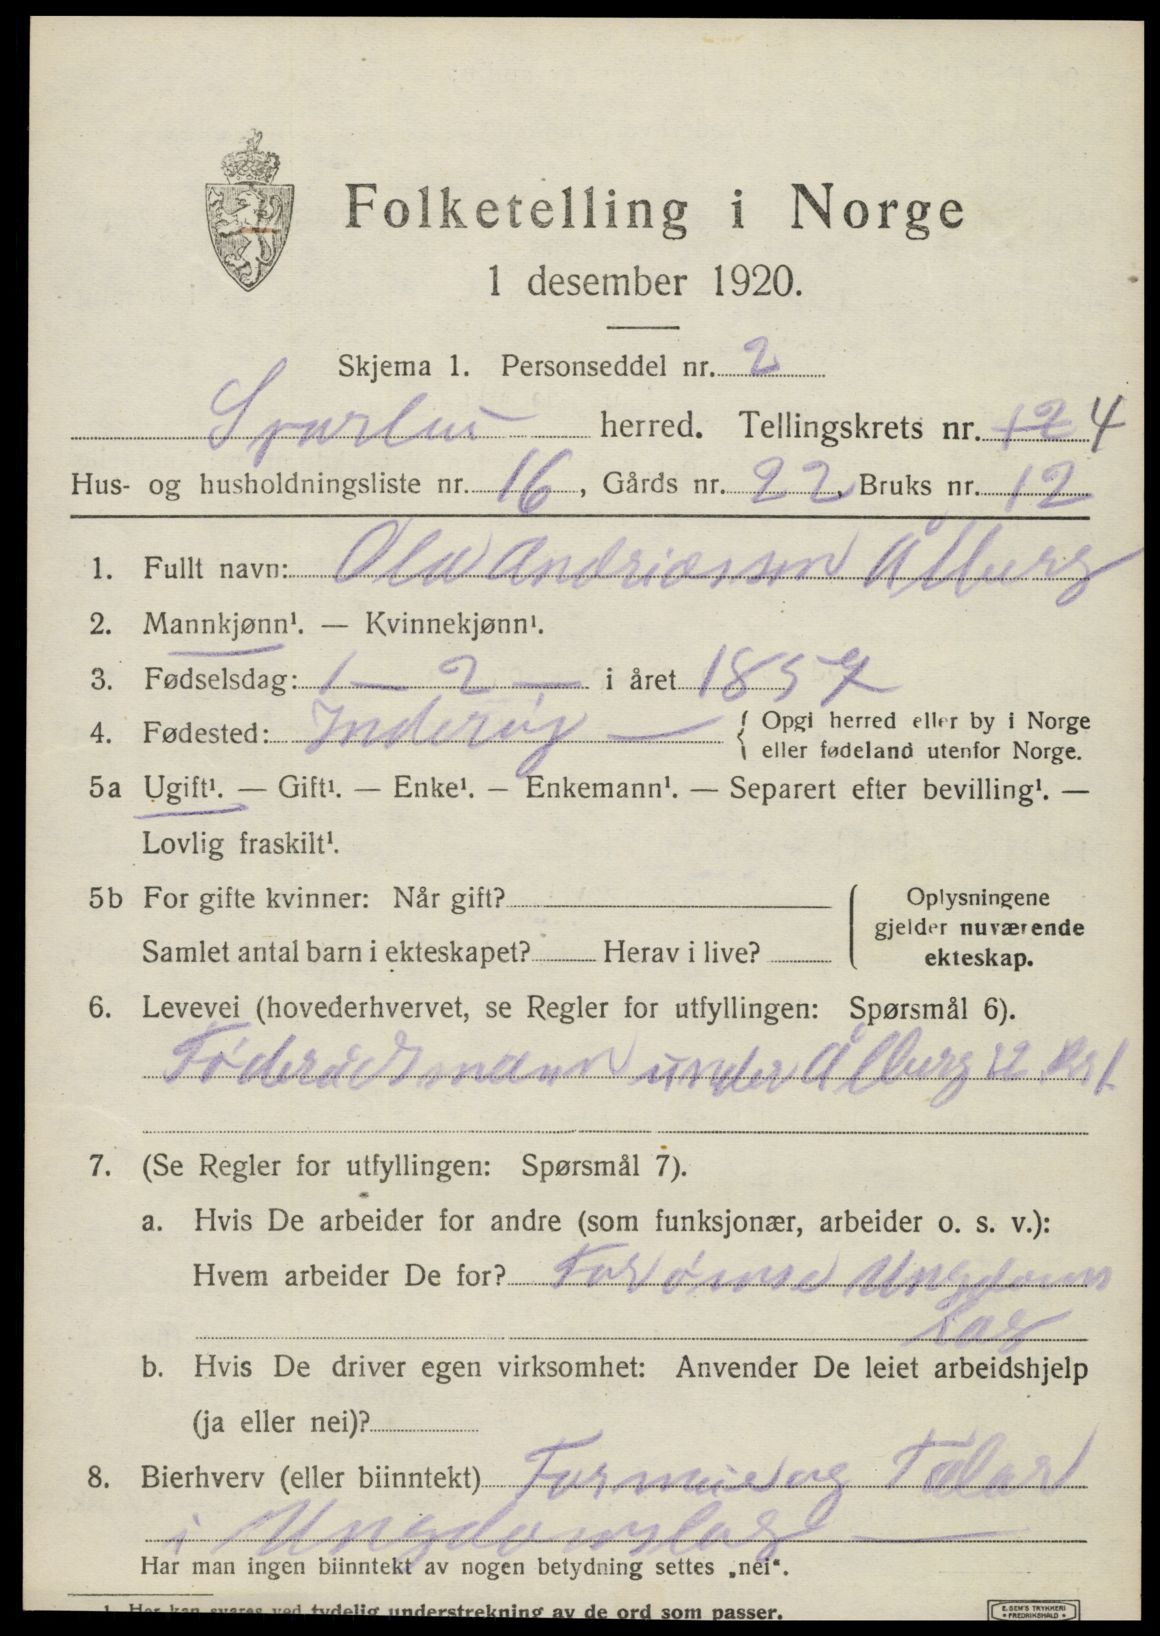 Folketelling i Norge
1 desember 1920.
Skjema 1. Personseddel nr. 2
Sparbu herred. Tellingskrets nr. 12 4
Hus- og husholdningsliste nr. 16, Gårds nr. 22, Bruks nr. 12
1. Fullt navn: Ola Andreassen Ålberg
2. Mannkjønn¹. — Kvinnekjønn¹.
3. Fødselsdag: 1 — 2 — i året 1857
4. Fødested: Inderøy — { Opgi herred eller by i Norge
eller fødeland utenfor Norge.
5a Ugift¹. — Gift¹. — Enke¹. — Enkemann¹. — Separert efter bevilling¹. —
Lovlig fraskilt¹.
5b For gifte kvinner: Når gift?
Samlet antal barn i ekteskapet? Herav i live?
Oplysningene
gjelder nuværende
ekteskap.
6. Levevei (hovederhvervet, se Regler for utfyllingen: Spørsmål 6).
Føderådsmann under Ålberg 22
7. (Se Regler for utfyllingen: Spørsmål 7).
a. Hvis De arbeider for andre (som funksjonær, arbeider o. s. v.):
Hvem arbeider De for? For Ungdoms
Lag
b. Hvis De driver egen virksomhet: Anvender De leiet arbeidshjelp
(ja eller nei)?
8. Bierhverv (eller biinntekt) og Talar
i Ungdomslag —
Har man ingen biinntekt av nogen betydning settes „nei“.
1. Her kan svares ved tydelig understrekning av de ord som passer.
E. SEM'S TRYKKERI
FREDRIKSHALD